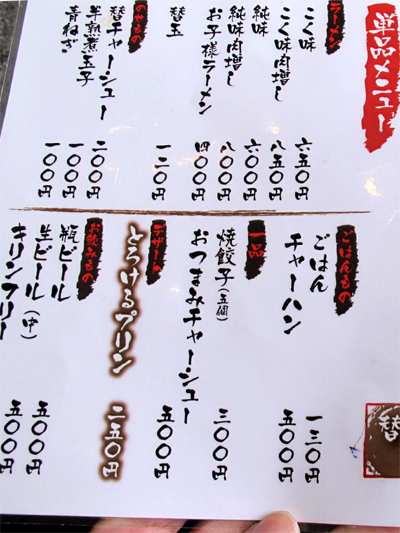 単品メニュー
ラーメン
こく味 六五〇円
こく味肉増し 八五〇円
純味 六〇〇円
純味肉増し 八〇〇円
お子様ラーメン 四〇〇円
替玉 一二〇円
のせもの
替チャーシュー 二〇〇円
半熟煮玉子 一〇〇円
青ねぎ 一〇〇円
ごはんもの
ごはん 一三〇円
チャーハン 五〇〇円
一品
焼餃子(五個) 三〇〇円
おつまみチャーシュー 五〇〇円
デザート
とろけるプリン 二五〇円
お飲みもの
瓶ビール 五〇〇円
生ビール(中) 五〇〇円
キリンフリー
替